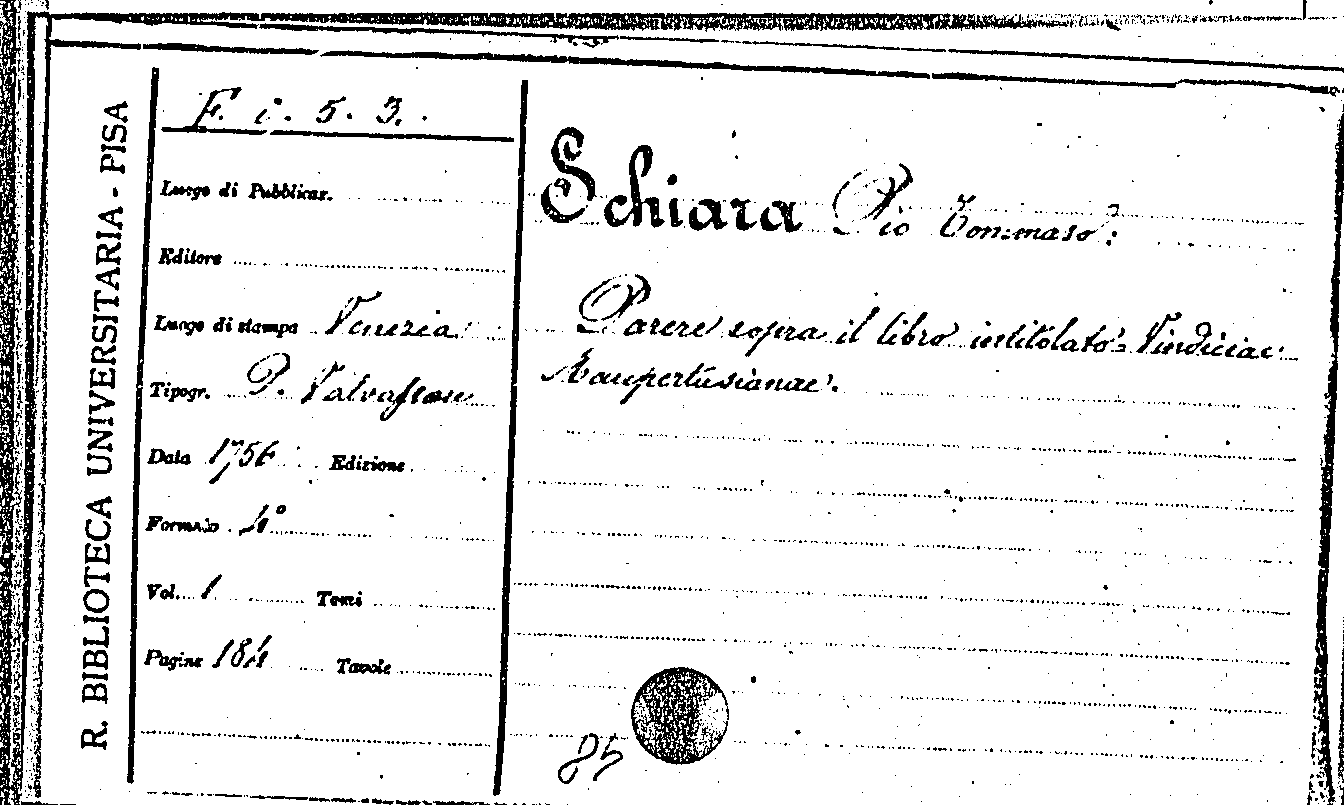 R. BIBLIOTECA UNIVERSITARIA - PISA
F. i. 5. 3.
Luogo di Pubblicaz.
Editore
Luogo di stampa Venezia
Tipogr. P. Valvassense
Data 1756 Edizione
Formato 4°
Vol. 1 Tomi
Pagine 184 Tavole
Schiara Pio Tommaso:
Parere sopra il libro intitolato: Vindiciae
Maupertusianae.
85